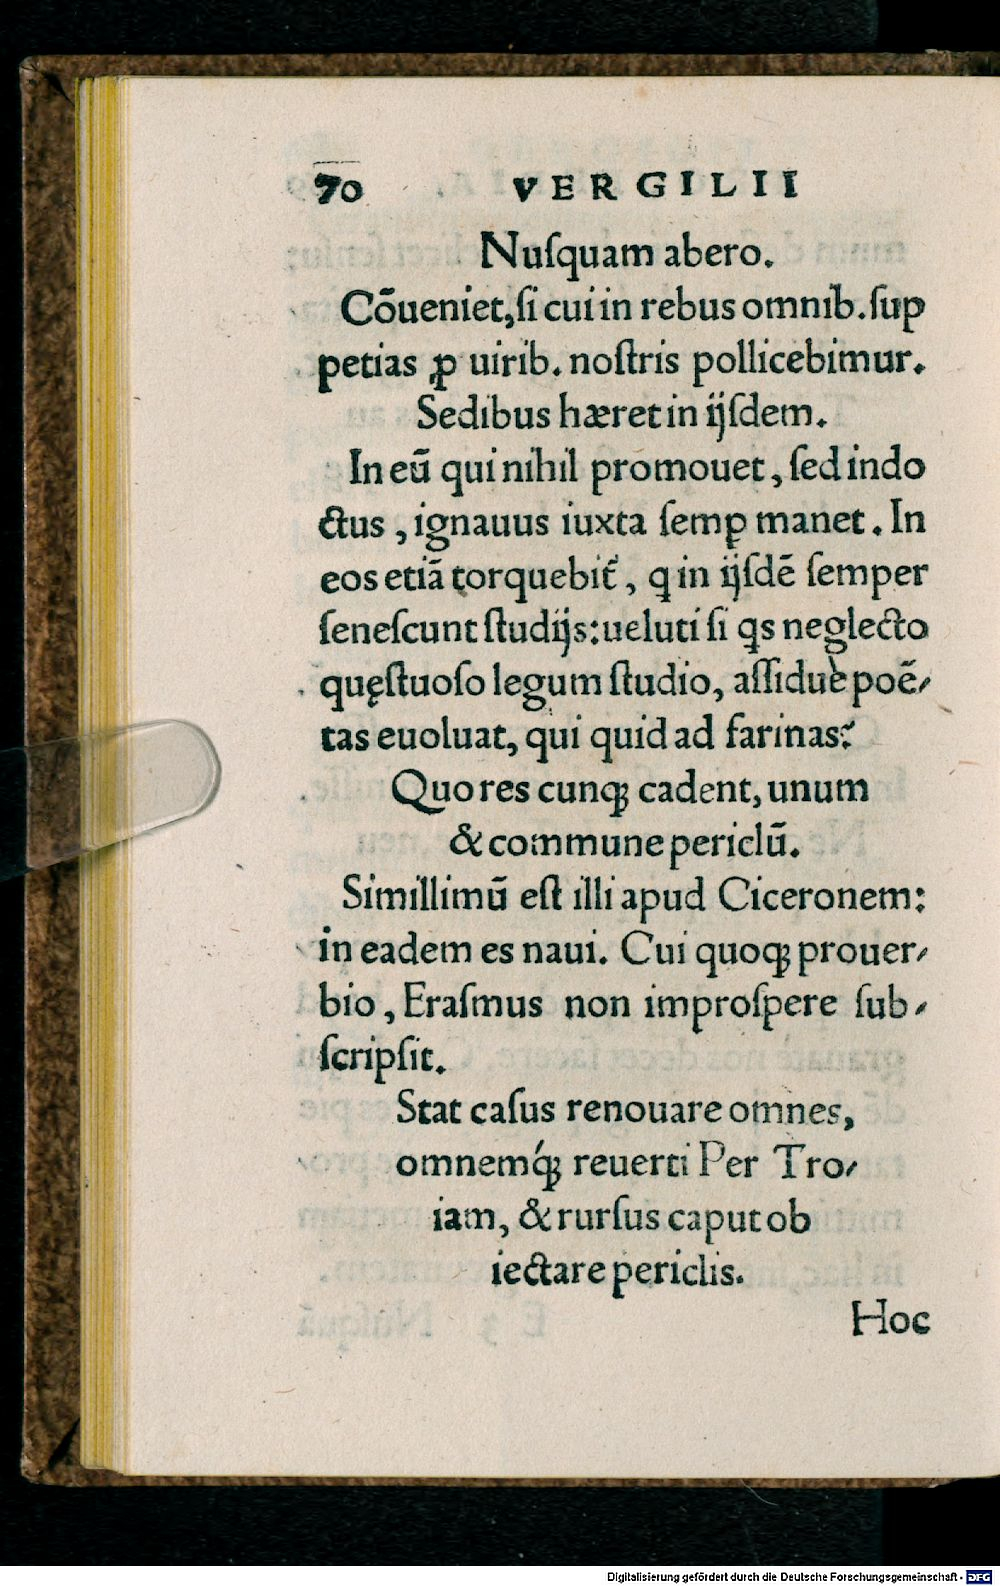 70 VERGILII
Nuſquam abero.
Cōueniet, ſi cui in rebus omnib. ſup
petias ꝓ uirib. noſtris pollicebimur.
Sedibus hæret in ijſdem.
In eū qui nihil promouet, ſed indo
ctus, ignauus iuxta ſemꝑ manet. In
eos etiā torquebit᷑, ꝗ in ijſdē ſemper
ſeneſcunt ſtudijs: ueluti ſi ꝗs neglecto
quęſtuoſo legum ſtudio, aſſiduè poē⸗
tas euoluat, qui quid ad farinas?
Quo res cunꝗ cadent, unum
& commune periclū.
Simillimū eſt illi apud Ciceronem:
in eadem es naui. Cui quoꝗ prouer⸗
bio, Eraſmus non improſpere ſub⸗
ſcripſit.
Stat caſus renouare omnes,
omnemꝗ́ reuerti Per Tro⸗
iam, & rurſus caput ob
iectare periclis.
Hoc
Digitalisierung gefördert durch die Deutsche Forschungsgemeinschaft - DFG